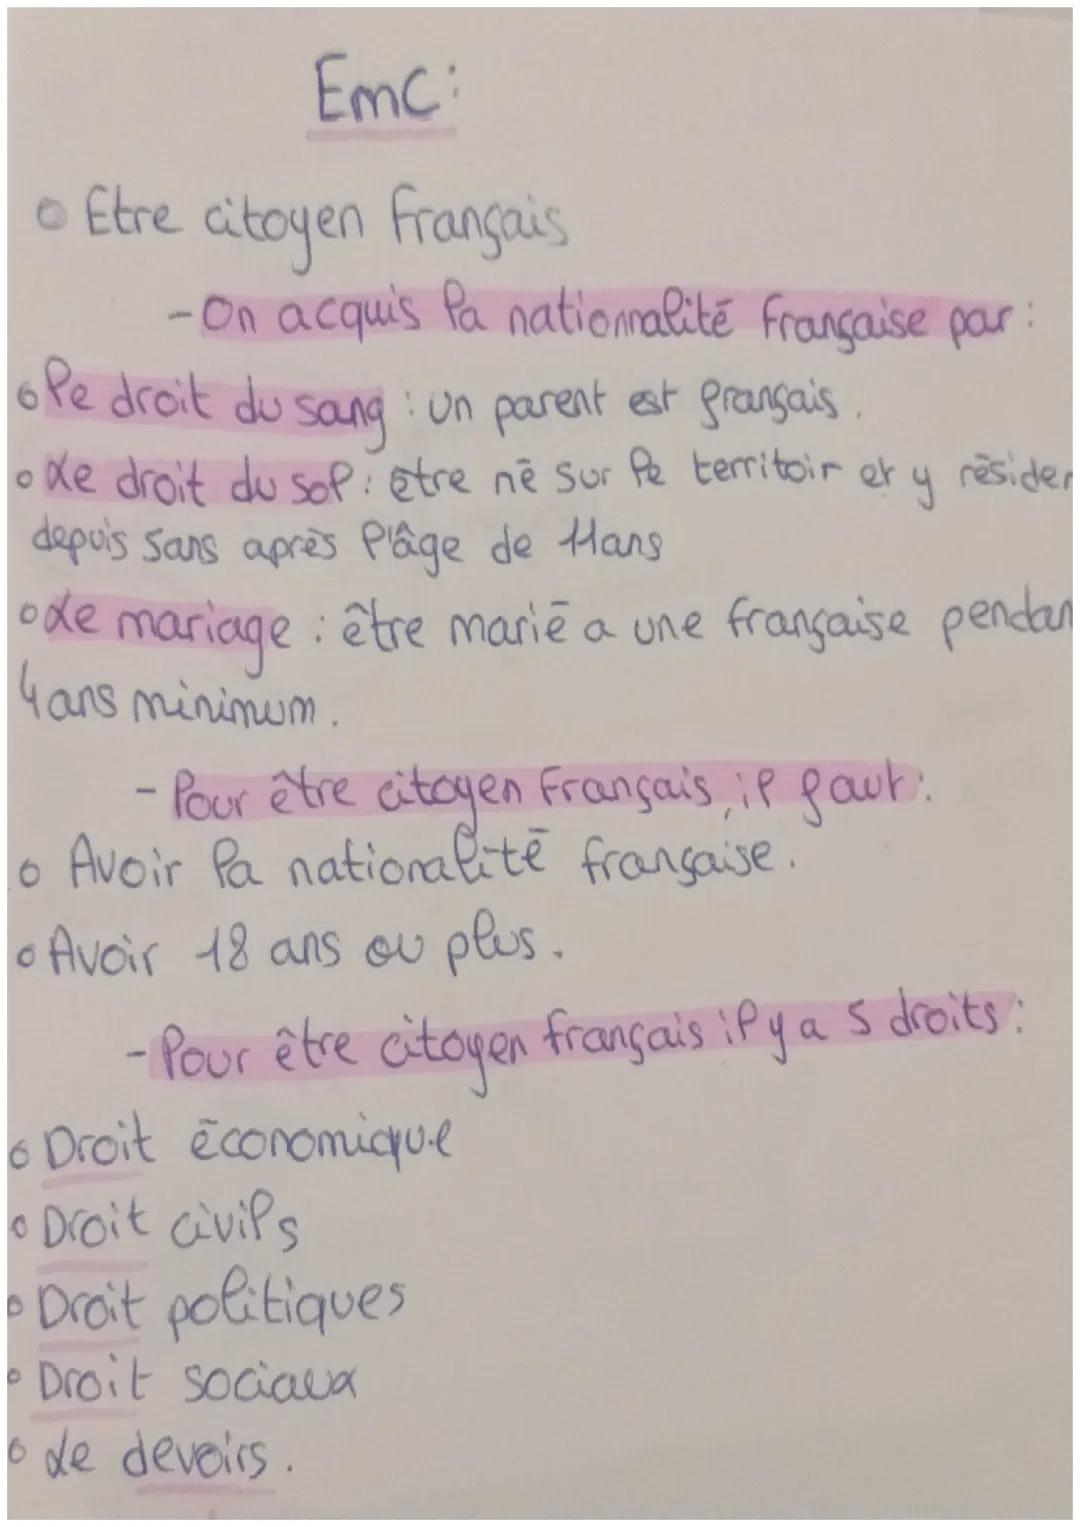 EmC:
Etre citoyen français
- On acquis la nationnalité française par :
le droit du sang : un parent est français.
Le droit du sol : être né sur le territoir et y résider
depuis 5ans après l'âge de 11ans
Le mariage : être marié a une française pendan
4 ans minimum.
- Pour être citoyen Français, il faut :
Avoir la nationalité française.
Avoir 18 ans ou plus.
- Pour être citoyen français il y a 5 droits :
Droit économique
Droit civils
Droit politiques
Droit sociaux
Le devoirs.